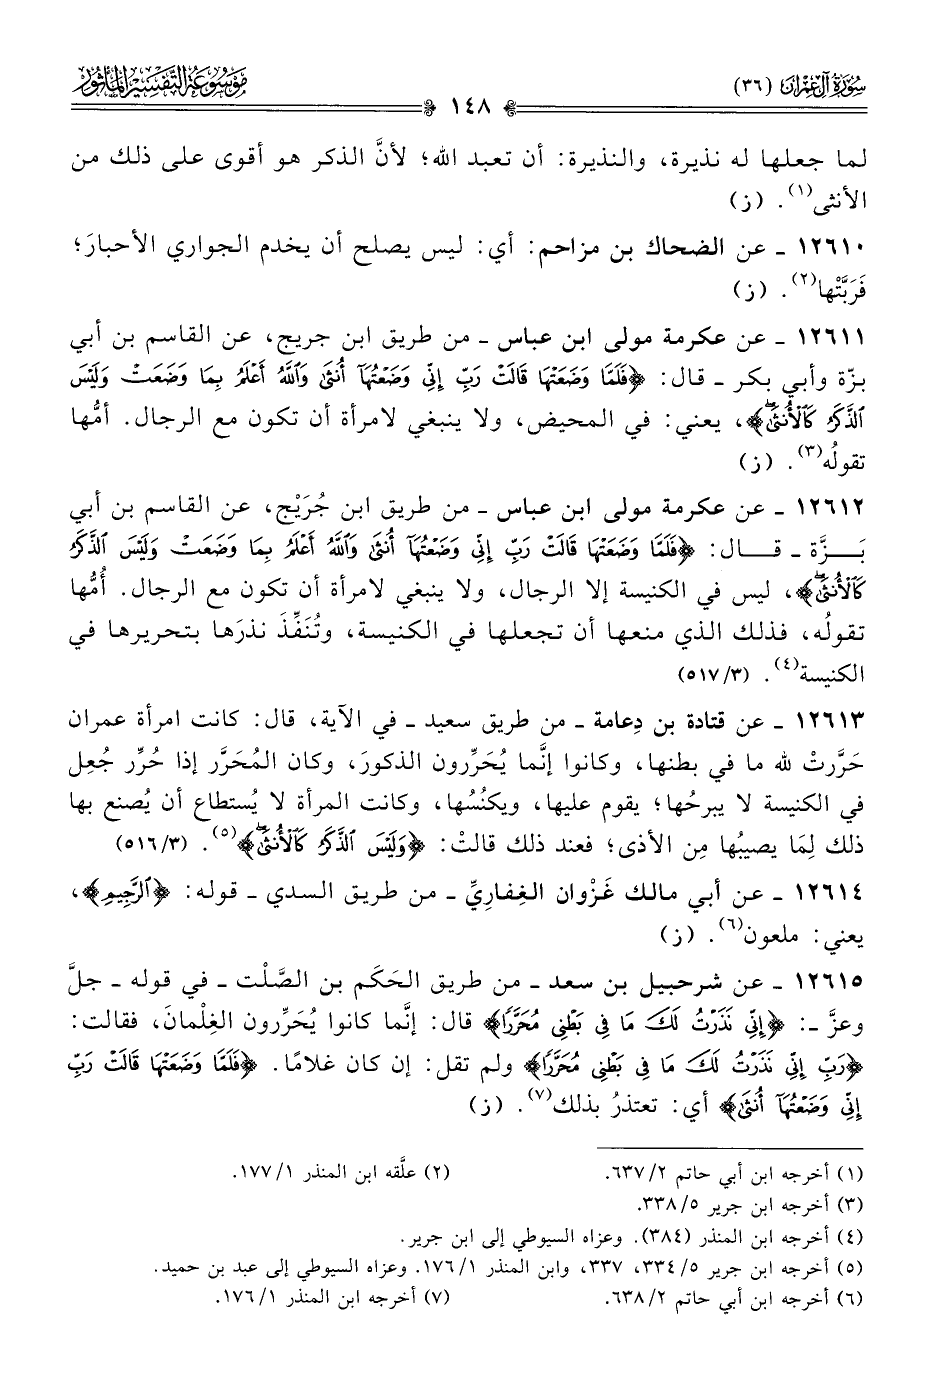 سُورَةُ آلِ عِمْرَانَ (٣٦)
١٤٨
مَوْسُوعَةُ التَّفْسِيرِ المَأْثُورِ
لما جعلها له نذيرة، والنذيرة: أن تعبد الله؛ لأنَّ الذكر هو أقوى على ذلك من
الأنثى(١). (ز)
١٢٦١٠ ـ عن الضحاك بن مزاحم: أي: ليس يصلح أن يخدم الجواري الأحبارَ؛
فَرَبَّتْها(٢). (ز)
١٢٦١١ ـ عن عكرمة مولى ابن عباس ـ من طريق ابن جريج، عن القاسم بن أبي
بزّة وأبي بكر ـ قال: ﴿فَلَمَّا وَضَعَتْهَا قَالَتْ رَبِّ إِنِّي وَضَعْتُهَآ أُنثَىٰ وَٱللَّهُ أَعْلَمُ بِمَا وَضَعَتْ وَلَيْسَ
ٱلذَّكَرُ كَٱلْأُنثَىٰۖ﴾، يعني: في المحيض، ولا ينبغي لامرأة أن تكون مع الرجال. أمُّها
تقولُه(٣). (ز)
١٢٦١٢ ـ عن عكرمة مولى ابن عباس ـ من طريق ابن جُرَيْج، عن القاسم بن أبي
بَـــزَّة ـ قـــال: ﴿فَلَمَّا وَضَعَتْهَا قَالَتْ رَبِّ إِنِّي وَضَعْتُهَآ أُنثَىٰ وَٱللَّهُ أَعْلَمُ بِمَا وَضَعَتْ وَلَيْسَ ٱلذَّكَرُ
كَٱلْأُنثَىٰۖ﴾، ليس في الكنيسة إلا الرجال، ولا ينبغي لامرأة أن تكون مع الرجال. أُمُّها
تقولُه، فذلك الذي منعها أن تجعلها في الكنيسة، وتُنَفِّذَ نذرَها بتحريرها في
الكنيسة(٤). (٥١٧/٣)
١٢٦١٣ ـ عن قتادة بن دِعامة ـ من طريق سعيد ـ في الآية، قال: كانت امرأة عمران
حَرَّرتْ لله ما في بطنها، وكانوا إنَّما يُحَرِّرون الذكورَ، وكان المُحَرَّر إذا حُرِّر جُعِل
في الكنيسة لا يبرحُها؛ يقوم عليها، ويكنُسُها، وكانت المرأة لا يُستطاع أن يُصنع بها
ذلك لِمَا يصيبُها مِن الأذى؛ فعند ذلك قالتْ: ﴿وَلَيْسَ ٱلذَّكَرُ كَٱلْأُنثَىٰۖ﴾(٥). (٥١٦/٣)
١٢٦١٤ ـ عن أبي مالك غَزْوان الغِفارِيِّ ـ من طريق السدي ـ قوله: ﴿ٱلرَّجِيمِ﴾،
يعني: ملعون(٦). (ز)
١٢٦١٥ ـ عن شرحبيل بن سعد ـ من طريق الحَكَم بن الصَّلْت ـ في قوله ـ جلَّ
وعزَّ ـ: ﴿إِنِّي نَذَرْتُ لَكَ مَا فِي بَطْنِي مُحَرَّرًا﴾ قال: إنَّما كانوا يُحَرِّرون الغِلْمانَ، فقالت:
﴿رَبِّ إِنِّي نَذَرْتُ لَكَ مَا فِي بَطْنِي مُحَرَّرًا﴾ ولم تقل: إن كان غلامًا. ﴿فَلَمَّا وَضَعَتْهَا قَالَتْ رَبِّ
إِنِّي وَضَعْتُهَآ أُنثَىٰ﴾ أي: تعتذرُ بذلك(٧). (ز)
(١) أخرجه ابن أبي حاتم ٦٣٧/٢. (٢) علَّقه ابن المنذر ١٧٧/١.
(٣) أخرجه ابن جرير ٣٣٨/٥.
(٤) أخرجه ابن المنذر (٣٨٤). وعزاه السيوطي إلى ابن جرير.
(٥) أخرجه ابن جرير ٣٣٤/٥، ٣٣٧، وابن المنذر ١٧٦/١. وعزاه السيوطي إلى عبد بن حميد.
(٦) أخرجه ابن أبي حاتم ٦٣٨/٢. (٧) أخرجه ابن المنذر ١٧٦/١.